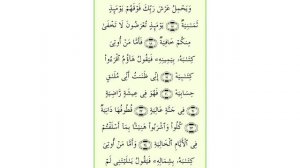 وَيَحْمِلُ عَرْشَ رَبِّكَ فَوْقَهُمْ يَوْمَئِذٍ
ثَمَٰنِيَةٌ ۝ يَوْمَئِذٍ تُعْرَضُونَ لَا تَخْفَىٰ
مِنكُمْ خَافِيَةٌ ۝ فَأَمَّا مَنْ أُوتِيَ
كِتَٰبَهُۥ بِيَمِينِهِۦ فَيَقُولُ هَآؤُمُ ٱقْرَءُوا۟
كِتَٰبِيَهْ ۝ إِنِّي ظَنَنتُ أَنِّي مُلَٰقٍ
حِسَابِيَهْ ۝ فَهُوَ فِي عِيشَةٍ رَّاضِيَةٍ
۝ فِي جَنَّةٍ عَالِيَةٍ ۝ قُطُوفُهَا دَانِيَةٌ
۝ كُلُوا۟ وَٱشْرَبُوا۟ هَنِيٓـًٔۢا بِمَآ أَسْلَفْتُمْ
فِي ٱلْأَيَّامِ ٱلْخَالِيَةِ ۝ وَأَمَّا مَنْ أُوتِيَ
كِتَٰبَهُۥ بِشِمَالِهِۦ فَيَقُولُ يَٰلَيْتَنِي لَمْ